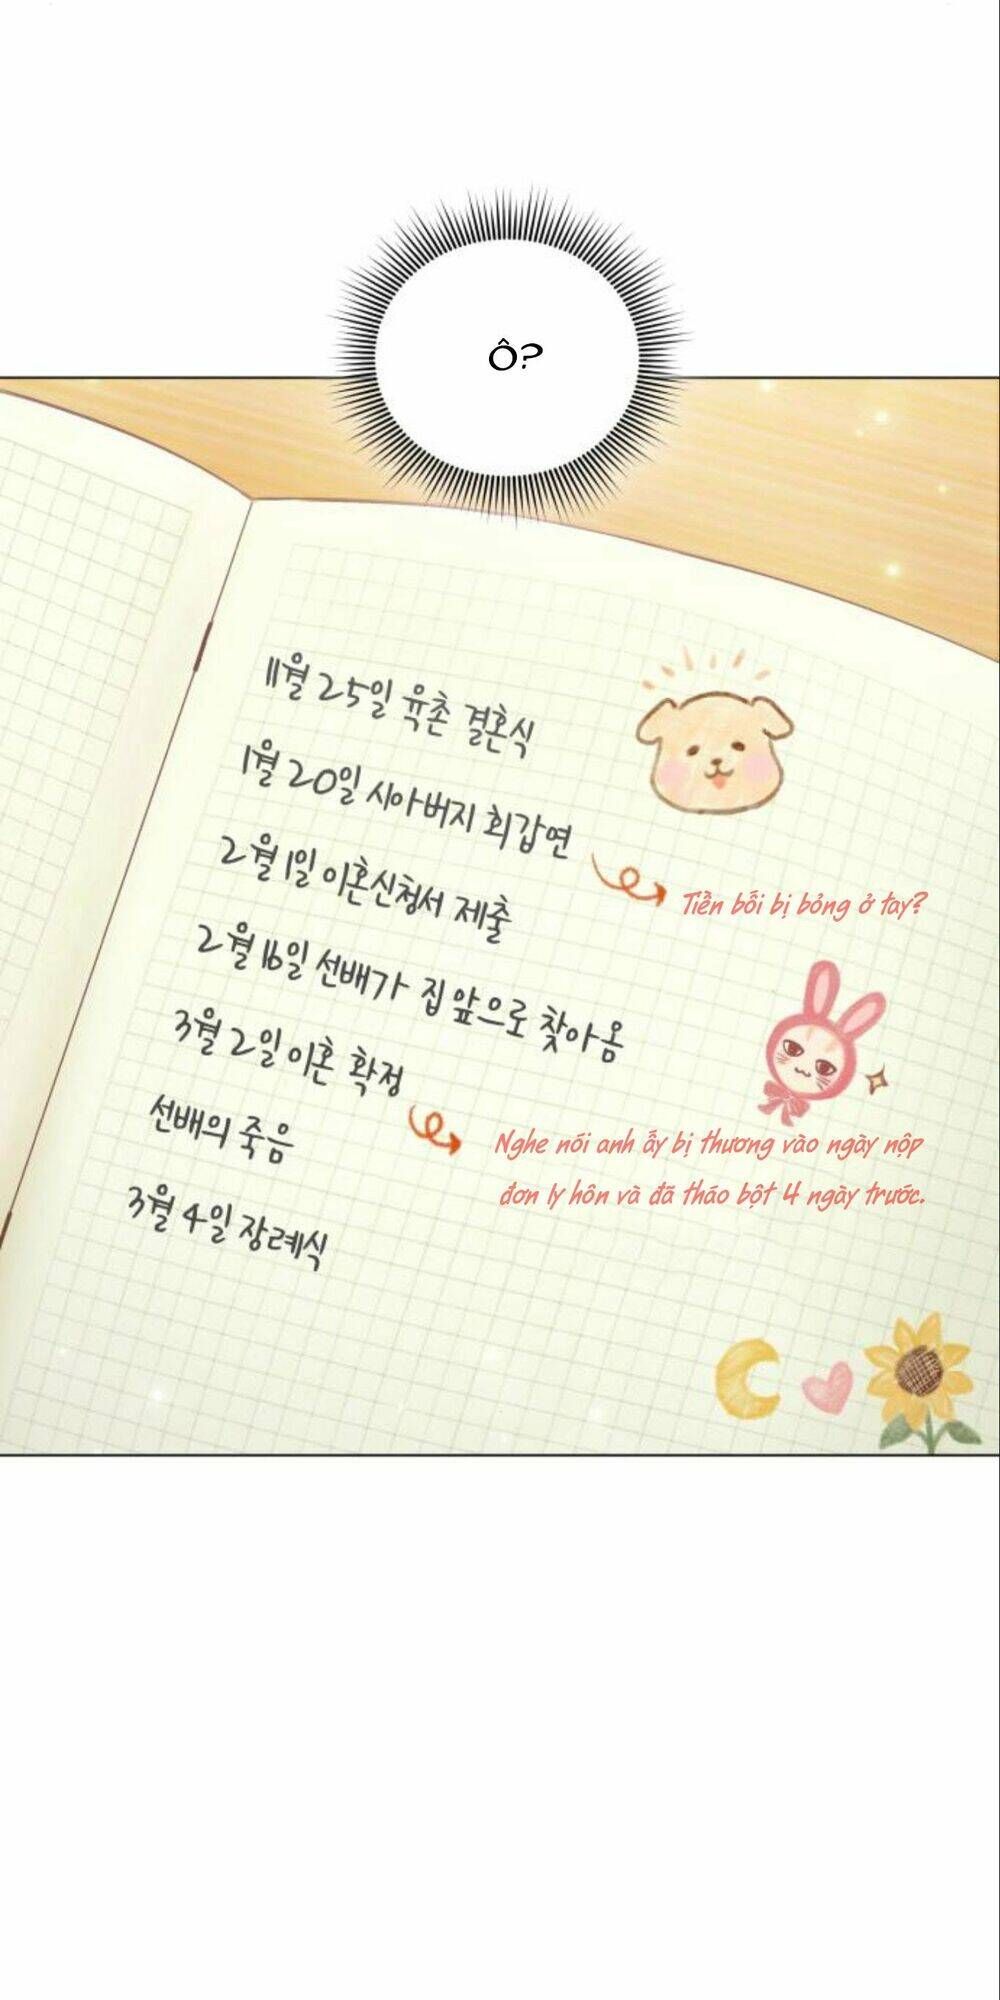 Ô?
11월 25일 육촌 결혼식
1월 20일 시아버지 회갑연
2월 1일 이혼신청서 제출
Tiền bối bị bỏng ở tay?
2월 16일 선배가 집 앞으로 찾아옴
3월 2일 이혼 확정
선배의 죽음
Nghe nói anh ấy bị thương vào ngày nộp
đơn ly hôn và đã tháo bột 4 ngày trước.
3월 4일 장례식